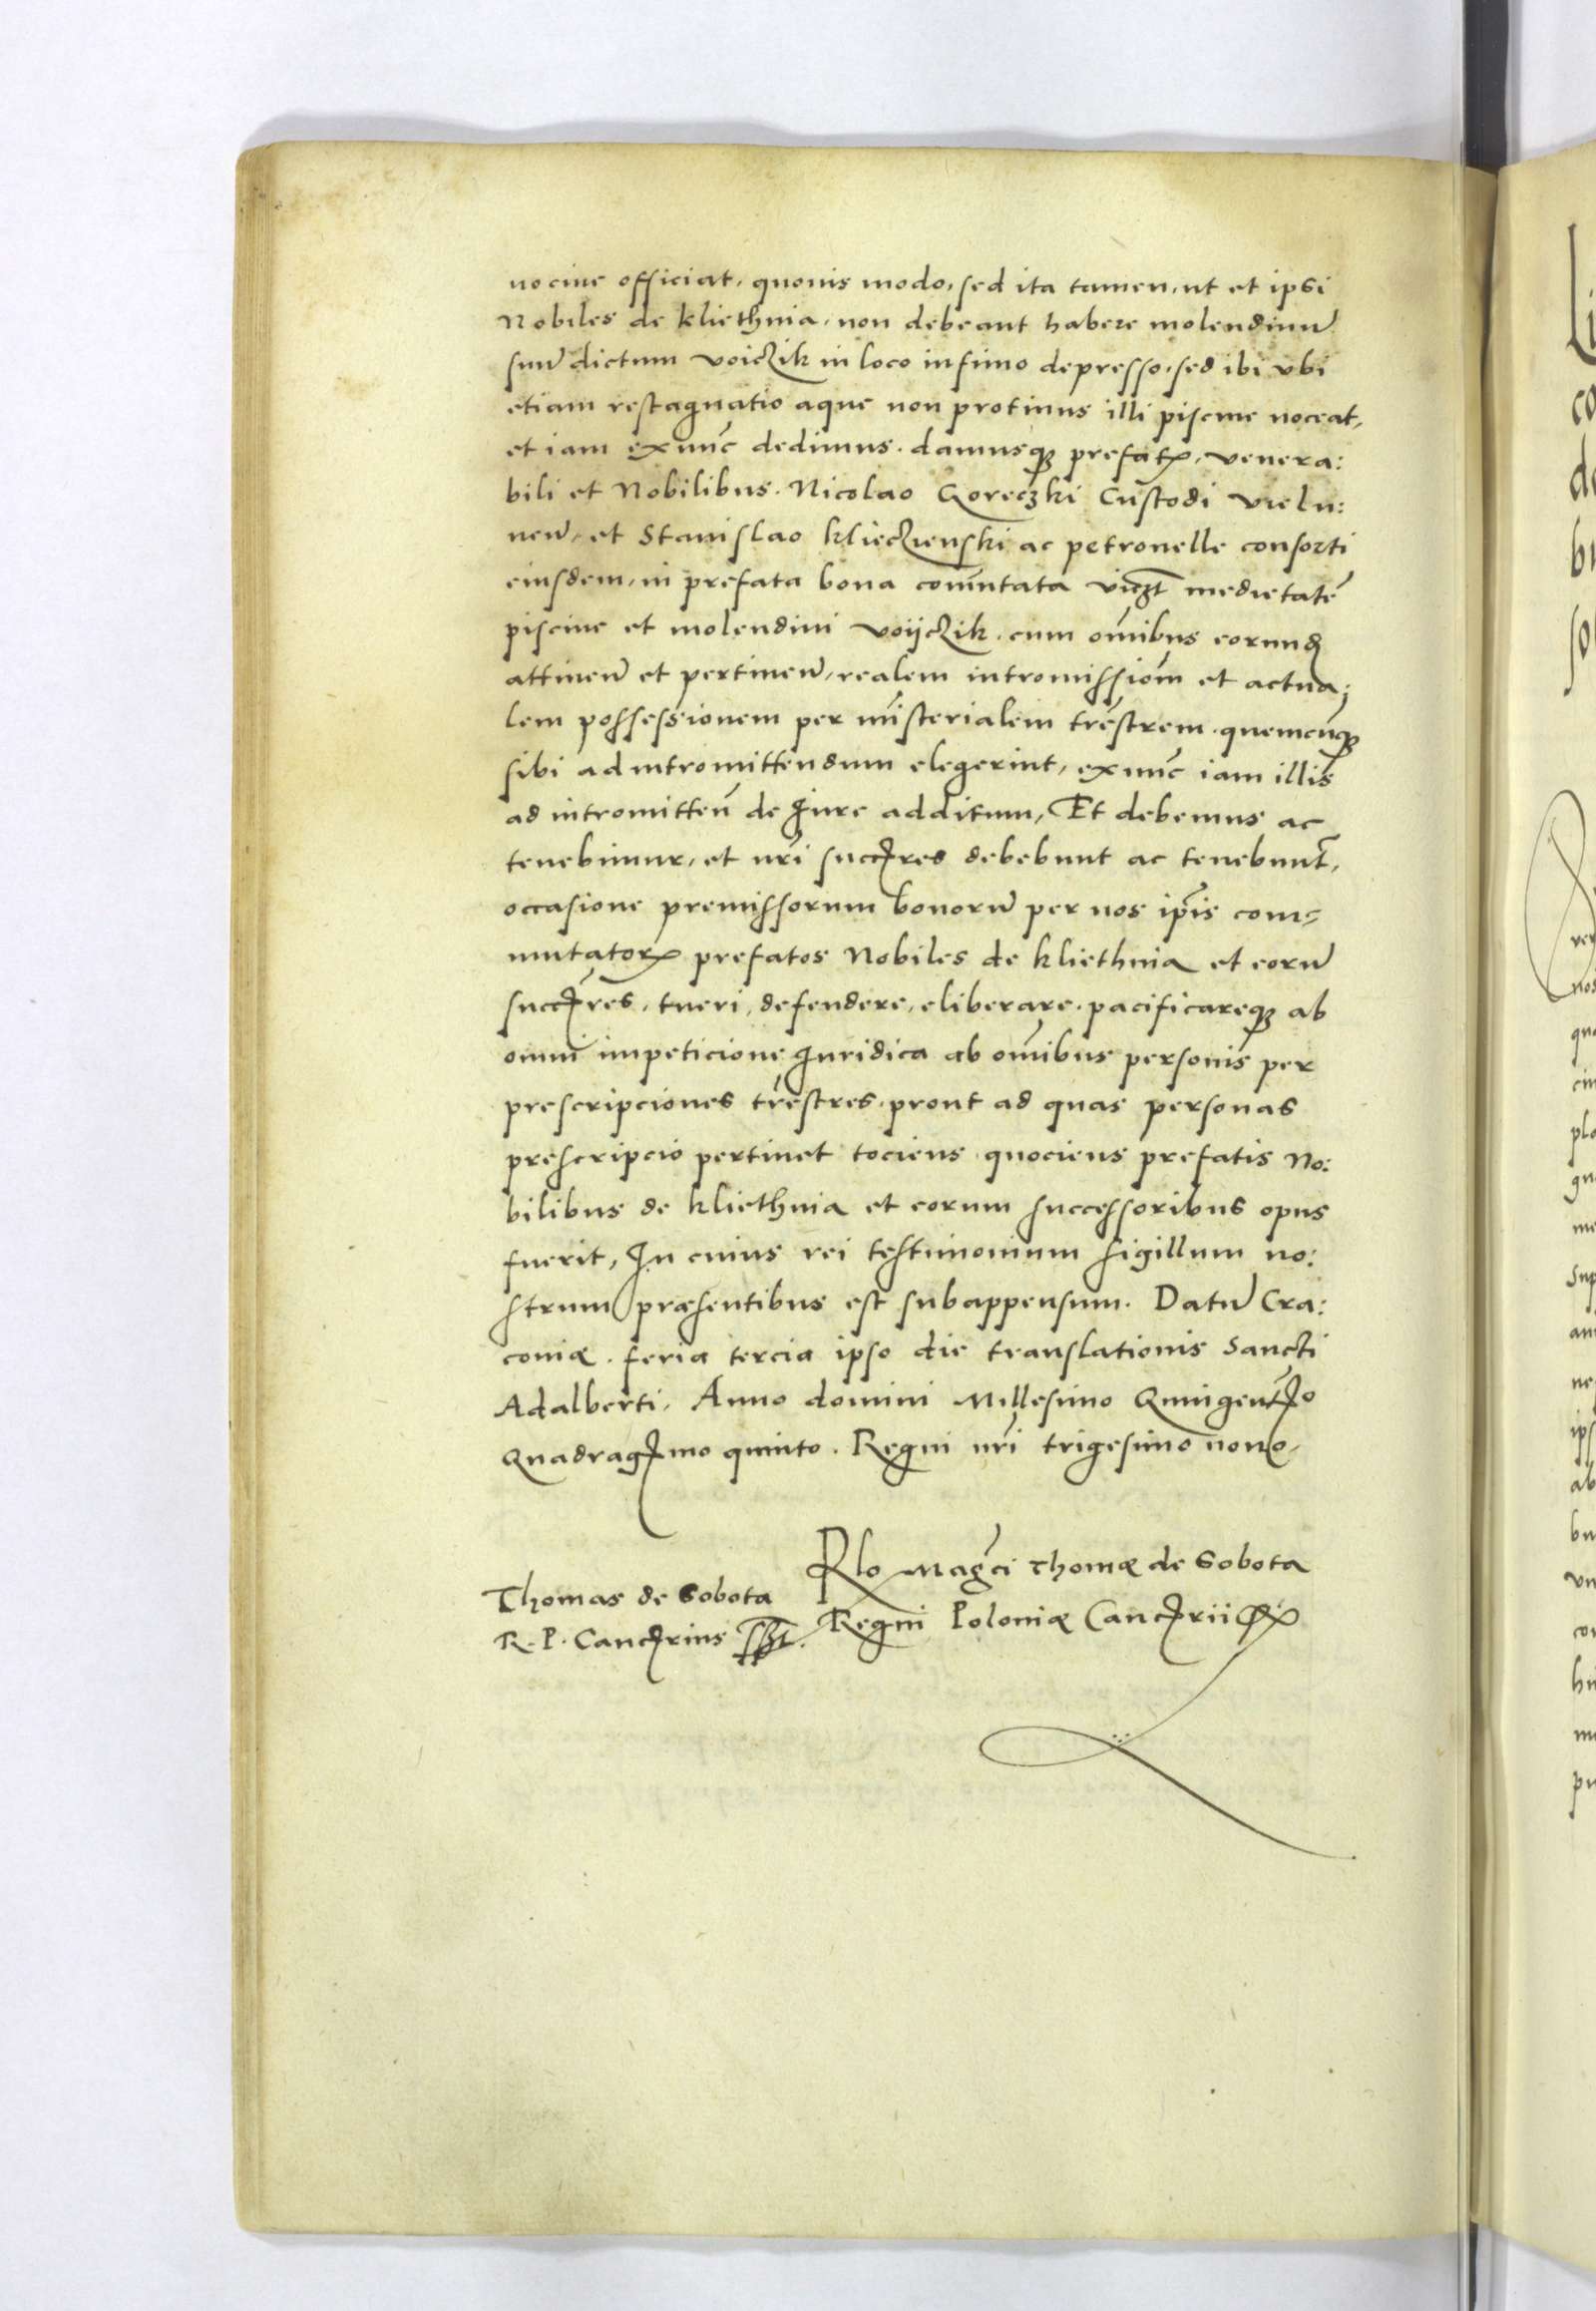 nocive officiat, quovis modo, sed ita tamen, ut et ipsi
Nobiles de Kliethnia, non debeant habere molendinũ
suũ dictum Voiczik in loco infimo depresso, sed ibi vbi
etiam restagnatio aque non protinus illi piscine noceat,
et iam ex nũc dedimus, damusq; prefatꝝ, venera:
bili et Nobilibus. Nicolao Goreczki Custodi Vielu:
neñ, et Stanislao Klieczienski ac petronelle consorti
eiusdem, in prefata bona com̃utata vicꝫt medietatẽ
piscine et molendini Voijczik, cum om̃ibus eorund
attineñ et pertineñ, realem intromissiom̃ et actua:
lem possessionem per mĩsterialem trẽstrem, quemcũq;
sibi ad intromittendum elegerint, ex nũc iam illis
ad intromitteñ de Jure additum, Et debemus ac
tenebimur, et nr̃i succẽres debebunt ac tenebunt̃,
occasione premissorum bonorũ per nos ip̃is com=
mutatorꝝ prefatos Nobiles de Kliethnia et eorũ
succẽres, tueri, defendere, eliberare, pacificareq; ab
omni impeticione Juridica ab om̃ibus personis per
prescripciones trẽstres, prout ad quas personas
prescripcio pertinet tociens, quociens prefatis No:
bilibus de Kliethnia et eorum successoribus opus
fuerit, In cuius rei testimonium sigillum no:
strum præsentibus est subappensum. Datũ Cra:
coviæ. feria tercia ipso die translationis Sancti
Adalberti, Anno domini Millesimo Quingentõ
Quadragmo quinto. Regni nr̃i trigesimo nono,
Rlo Mag̃ci Thomæ de Sobota
Thomas de Sobota
Regni Poloniæ Cancrii
R. P. Cancrius sszt.